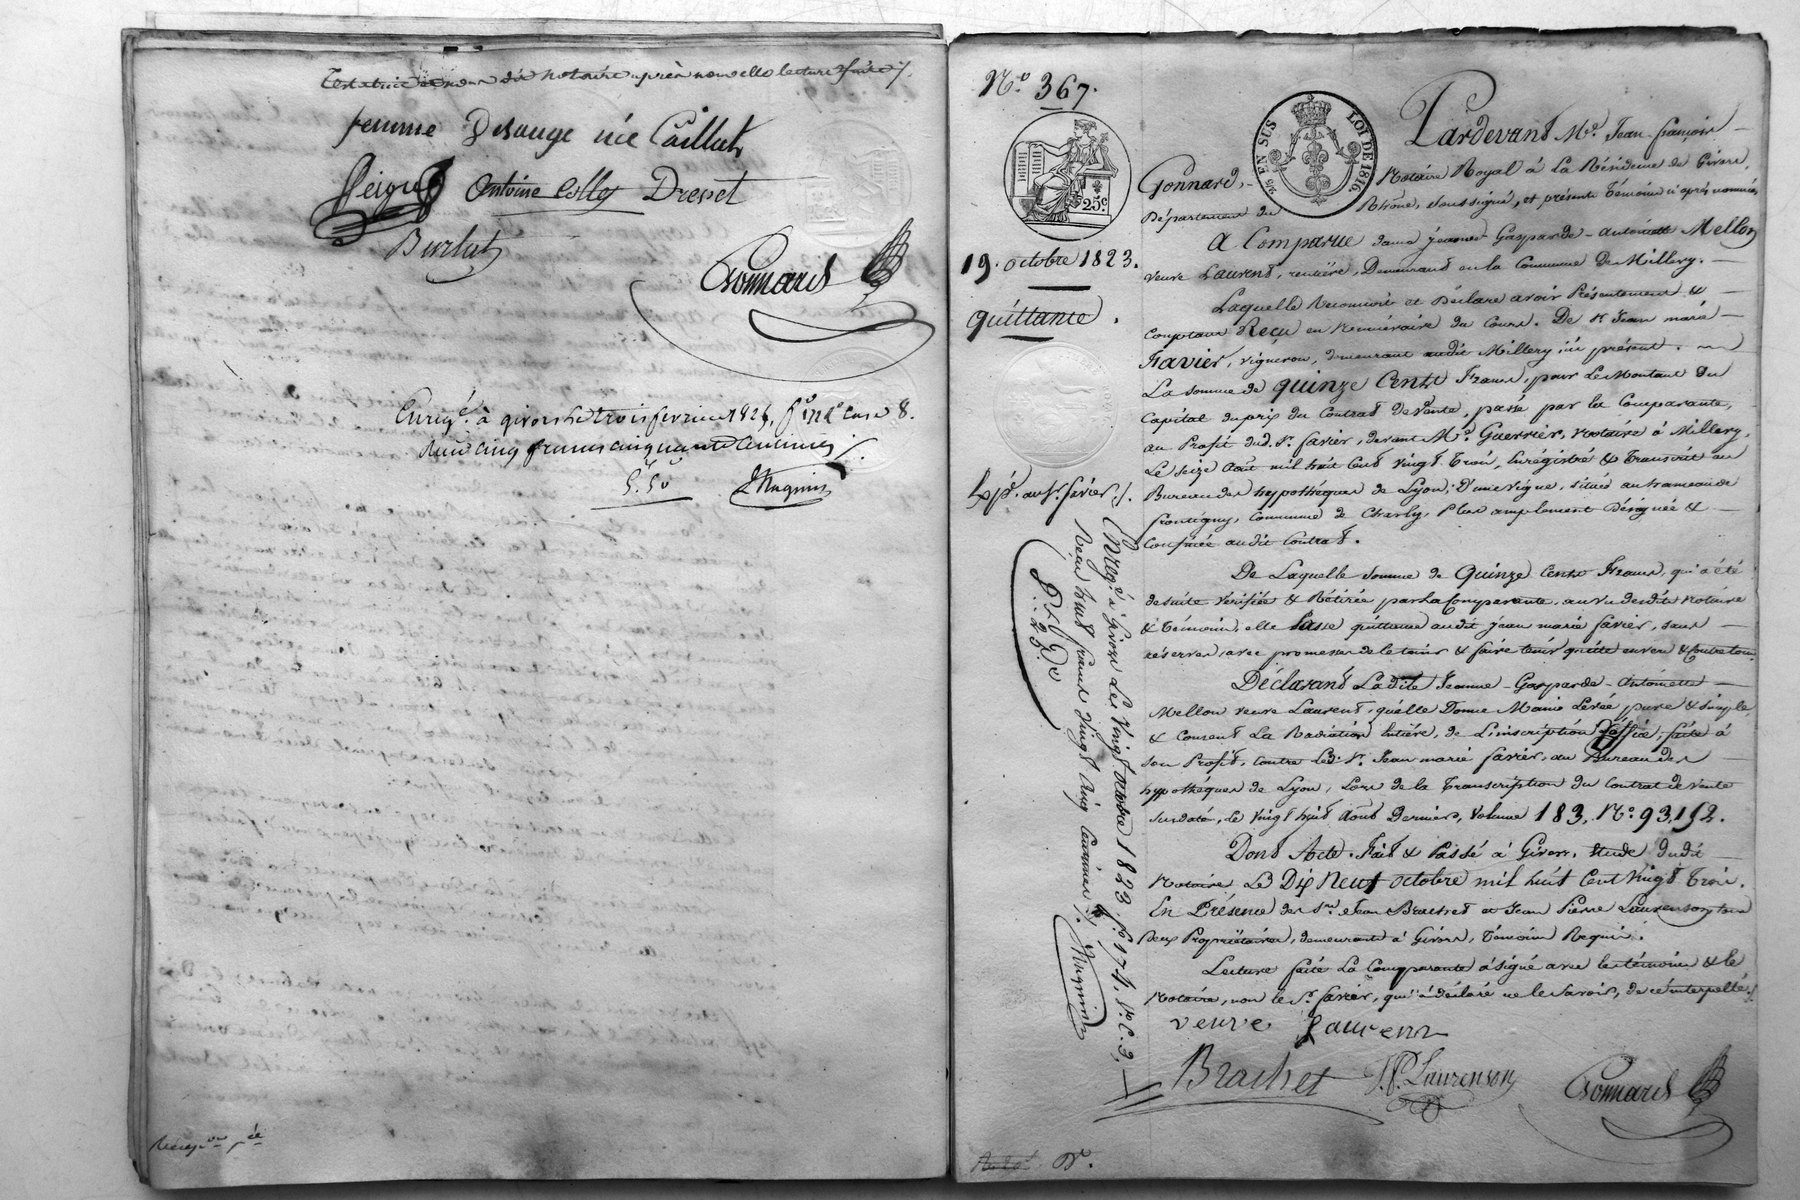 testatrice et nous dit notaire après nouvelle lecture faite ./.
femme Desauge née Caillat
Peigue Antoine Colley Drevet
Burlat
Gonnard
Enregé. à givors le trois février 182 fo. 172 Ro Case 8.
Reçu cinq francs cinquante Centimes ./.
No. 367.
25 EN SUS LOI DE 1816
25c
19. octobre 1823.
quittance.
Expé. au Sr. favier ./.
Enregé. à Givors Le Vingt octobre 1823. fo. 174. Vo. C. 3,
Reçu huit francs Vingt Cinq Centimes ./.
Pardevant Me. Jean françois
Gonnard, Notaire Royal à La Résidence de Givors,
Département du Rhône, soussigné, et présents témoins ci après nommés,
A Comparue dame Jeanne Gasparde Antoinette Mellon
veuve Laurent, rentière, Demeurant en la Commune De Millery.
Laquelle Reconnoit et Déclare avoir Présentement &
Comptant Reçu en Numéraire du Cours. De Sr. Jean marie
Favier, vigneron, demeurant audit Millery ici présent.
La somme de quinze Cents francs, pour Le Montant du
Capital du prix du Contrat de Vente, passé par la Comparante,
au Profit dud. Sr. favier, devant Me. Guerrier, notaire à Millery,
Le seize Août mil huit Cent vingt Trois, Enrégistré & Transcrit au
Bureau des hypothéques de Lyon; D'une vigne, située au hameau de
frontigny, Commune de Charly, Plus amplement Désignée &
Confinée audit Contrat.
De Laquelle Somme de Quinze Cents Francs, qui a été
de suite Vérifiée & Rétirée par La Comparante, au vu desdits notaire
& témoins, elle Passe quittance audit Jean marie favier, sans
réserves, avec promesse de le tenir & faire tenir quitte envers & Contre tous.
Déclarant Ladite Jeanne Gasparde Antoinette
Mellon veuve Laurent, qu'elle Donne Main Levée pure & simple,
& Consent La Radiation Entière, de L'inscription d'office, faite à
son Profit, contre Led. Sr. Jean marie favier, au Bureau des
hypothéques de Lyon, Lors de la Transcription du Contrat de Vente
susdaté, le Vingt huit Août Dernier, Volume 183, No. 93,192.
Dont Acte. Fait & Passé à Givors, Etude dudit
Notaire, Le Dix Neuf octobre mil huit Cent Vingt Trois.
En Présence des Srs. Jean Brachet et Jean Pierre Laurenson, tous
Deux Propriétaires, demeurants à Givors, témoins Requis.
Lecture faite La Comparante a signé avec les témoins & le
Notaire, non le Sr. favier, qui a déclaré ne le Savoir, de ce interpellé ./.
veuve Laurent
Brachet JP. Laurenson
Gonnard